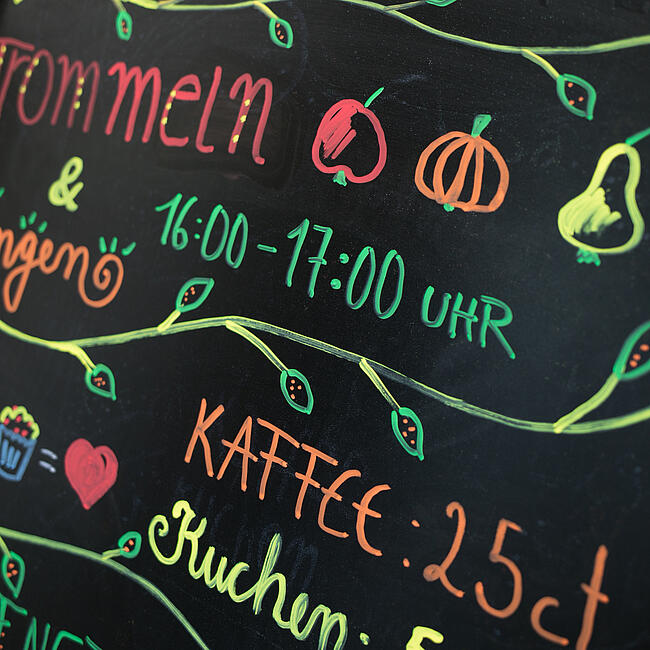 Trommeln
&
ngen
16:00 - 17:00 UHR
KAFFEE: 25ct
Kuchen: